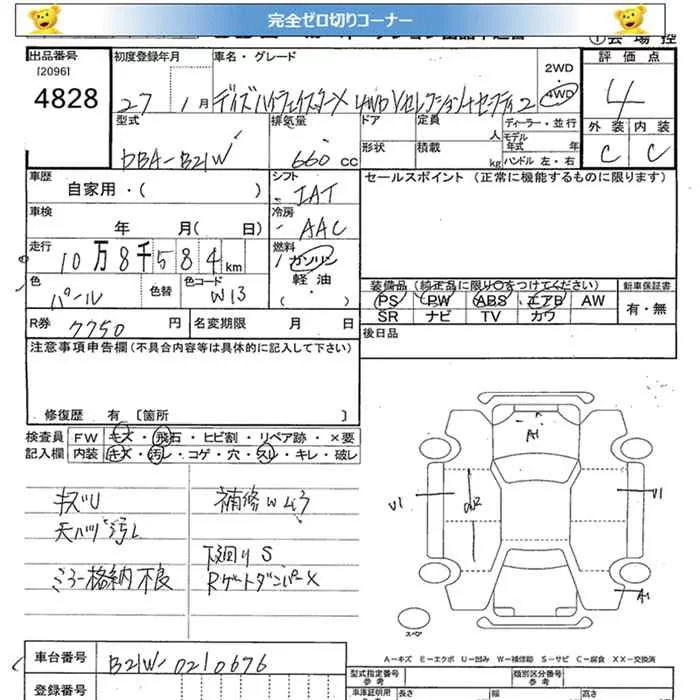 完全ゼロ切りコーナー
出品番号
[2096]
4828
初度登録年月
27 1月
車名・グレード
デイズハイウェイスターX 4WD Vセレクション+セーフティ2
2WD
4WD
評価点
4
外装 内装
C C
型式
DBA-B21W
排気量
660cc
ドア
形状
定員 人
積載 kg
ディーラー・並行
モデル年式 年
ハンドル 左・右
車歴
自家用・( )
シフト
IAT
セールスポイント (正常に機能するものに限ります)
車検
年 月( 日)
冷房
AAC
走行
10万8千584km
燃料
ガソリン
軽油
( ・ )
色
パール
色替
色コード
W13
装備品(純正品に限り○をつけてください)
PS PW ABS エアB AW
SR ナビ TV カワ
新車保証書
有・無
R券 7750円
名変期限 月 日
後日品
注意事項申告欄(不具合内容等は具体的に記入して下さい)
修復歴 有 [箇所 ]
検査員
記入欄
FW キズ・飛石・ヒビ割・リペア跡・×要
内装 キズ・汚レ・コゲ・穴・スレ・キレ・破レ
キズU
補修W43
天バリ汚L
下廻りS
ミラー格納不良
RゲートダンパーX
A1
U1
U1
A1
スペア
A-キズ E-エクボ U-凹み W-補修跡 S-サビ C-腐食 XX-交換済
車台番号
B21W-0210676
登録番号
型式指定番号
参考
類別区分番号
参考
車庫証明用
参考
長さ
幅
高さ